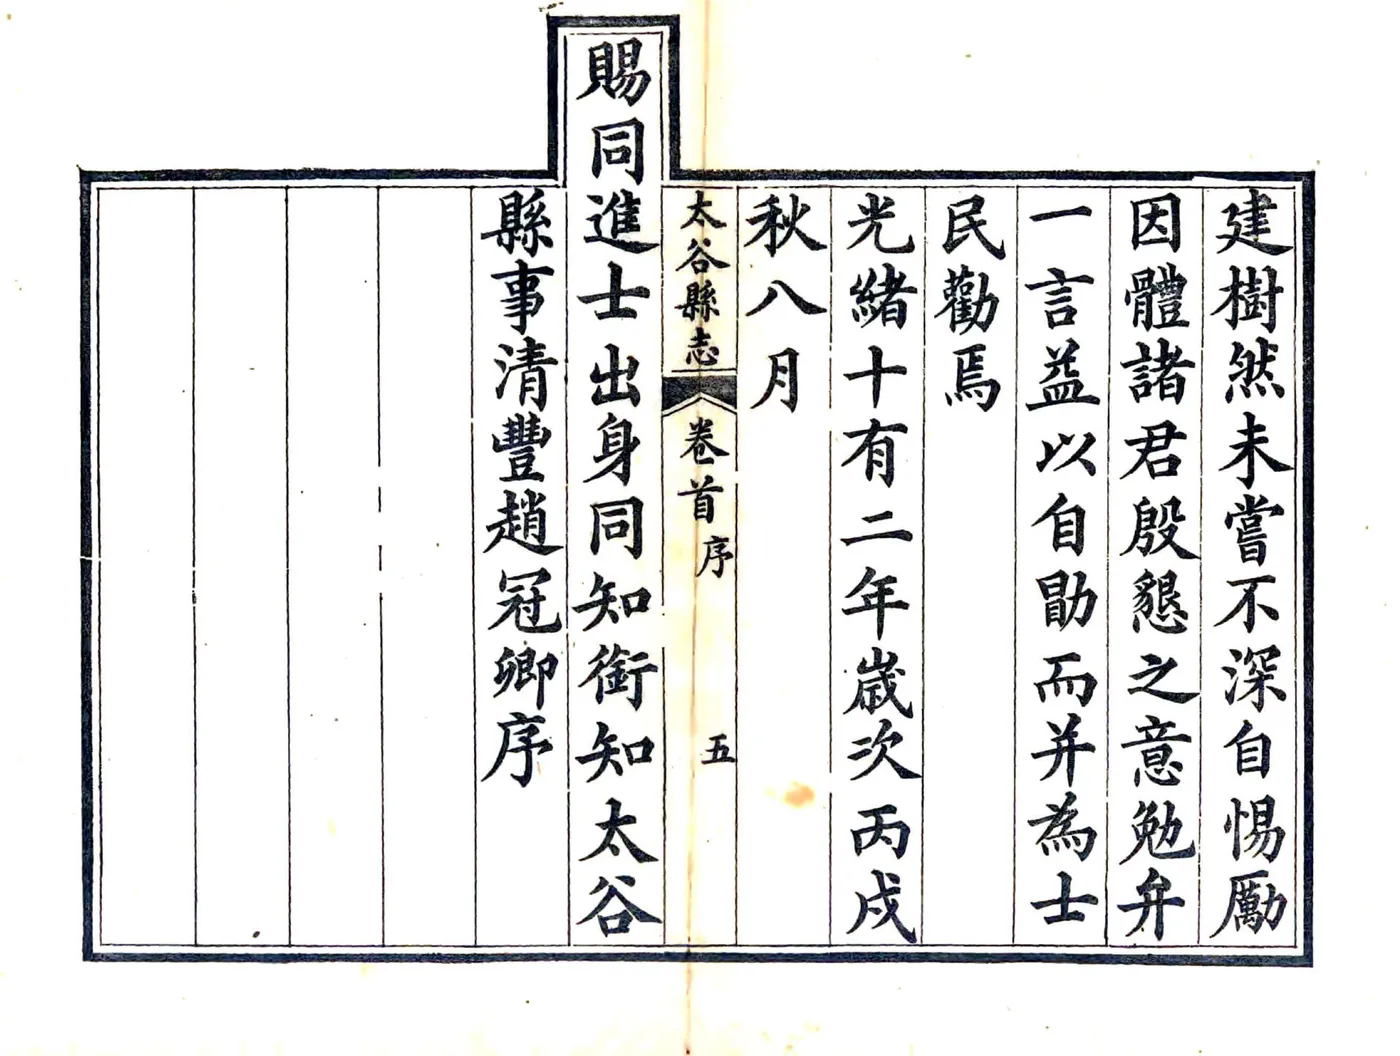 建樹然未嘗不深自惕厲
因體諸君殷懇之意勉弁
一言益以自勖而并為士
民勸焉
光緒十有二年歲次丙戌
秋八月
太谷縣志 卷首 序 五
賜同進士出身同知銜知太谷
縣事清豐趙冠卿序